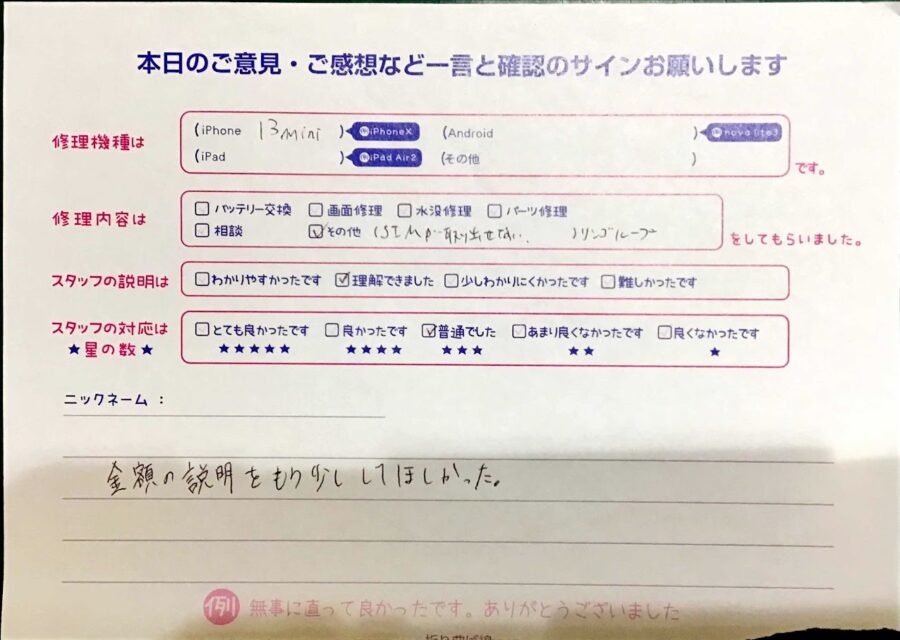 本日のご意見・ご感想など一言と確認のサインお願いします
修理機種は
(iPhone 13mini ) 例iPhoneX (Android ) 例nova lite3
(iPad ) 例iPad Air2 (その他 )
です。
修理内容は
バッテリー交換 画面修理 水没修理 パーツ修理
相談 その他 (SIMが取り出せない. )リンゴループ
をしてもらいました。
スタッフの説明は
わかりやすかったです 理解できました 少しわかりにくかったです 難しかったです
スタッフの対応は
★星の数★
とても良かったです 良かったです 普通でした あまり良くなかったです 良くなかったです
★★★★★ ★★★★ ★★★ ★★ ★
ニックネーム：
金額の説明をもう少ししてほしかった。
例 無事に直って良かったです。ありがとうございました